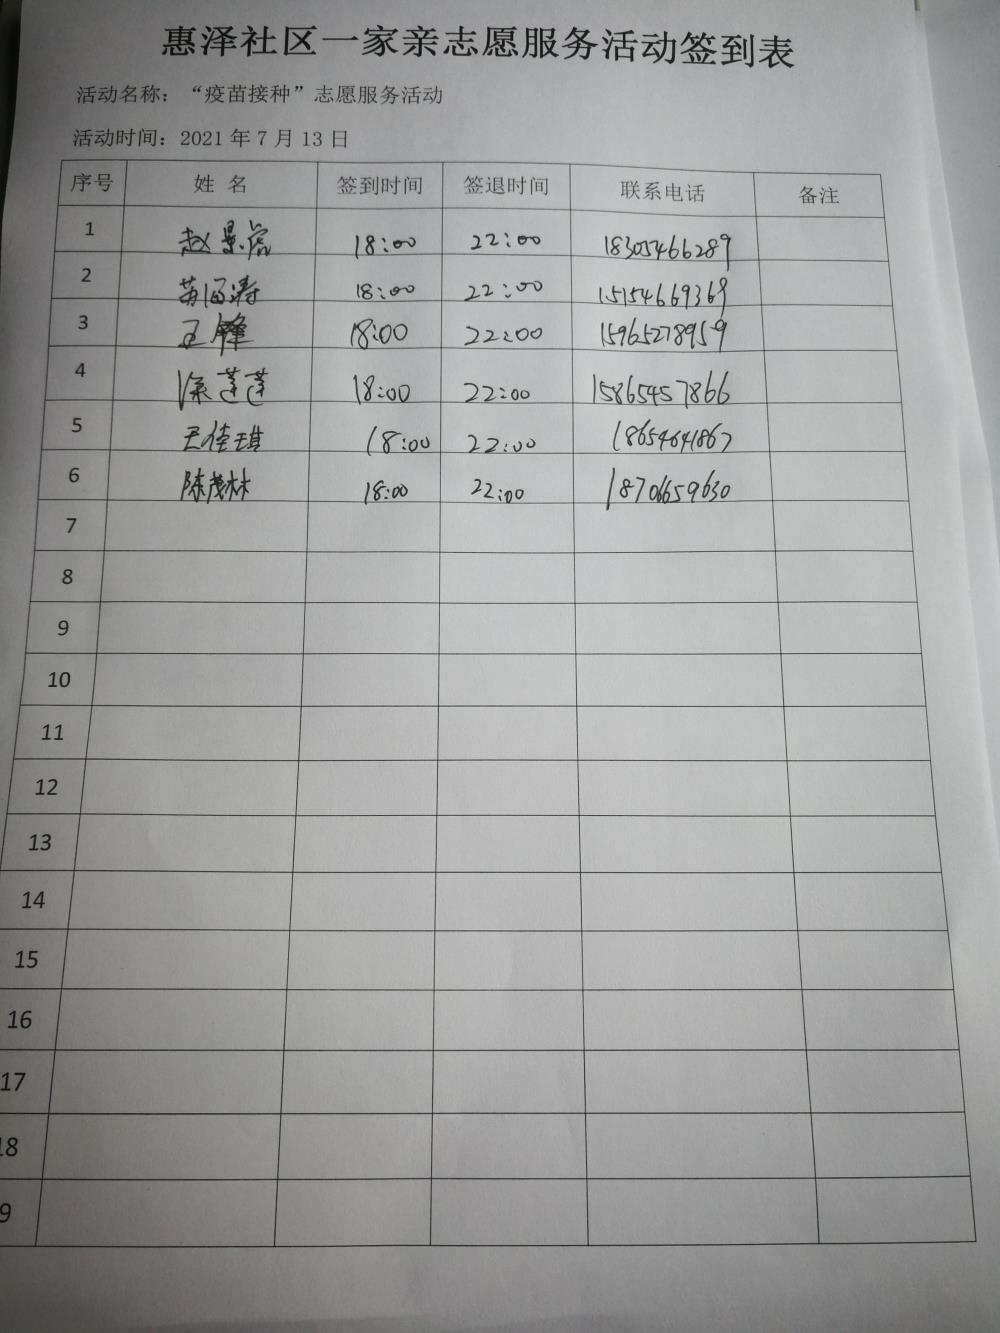 惠泽社区一家亲志愿服务活动签到表
活动名称：“疫苗接种”志愿服务活动
活动时间：2021年7月13日
序号 姓名 签到时间 签退时间 联系电话 备注
1 赵景宾 18:00 22:00 18305466289
2 苏涵涛 18:00 22:00 15154669369
3 王锋 18:00 22:00 15965278959
4 莲莲 18:00 22:00 15865457866
5 王佳琪 18:00 22:00 18654641867
6 陈茂林 18:00 22:00 18706659630
7
8
9
10
11
12
13
14
15
16
17
18
9